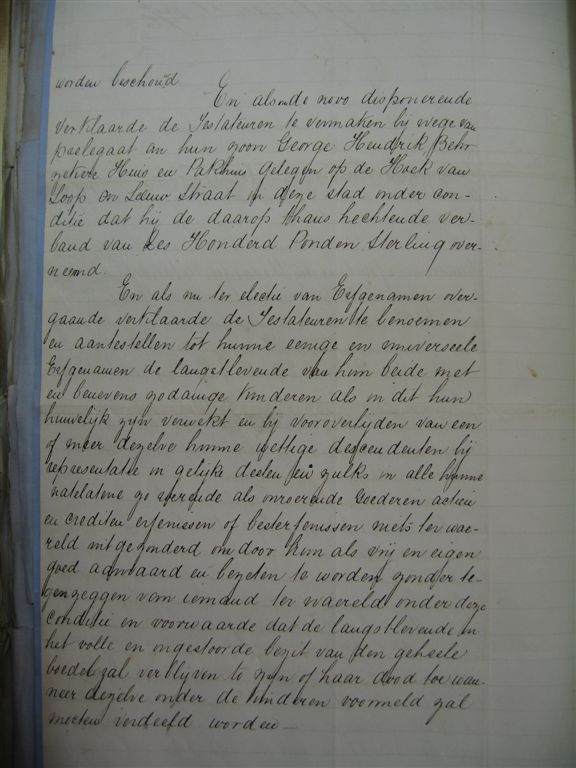 worden beschoud. En als nu de novo disponerende
verklaarde de Testateuren te vermaken bij wege van
praelegaat an hun zoon George Hendrik Behr
zekere Huis en Pakhuis gelegen op de Hoek van
Loop en Leeuw Straat in deze stad onder con-
ditie dat hij de daarop thans hechtende ver-
band van Zes Honderd Ponden Sterling over-
neemd.
En als nu ter electie van Erfgenamen over-
gaande verklaarde de Testateuren te benoemen
en aantestellen tot hunne eenige en universeele
Erfgenamen de langstlevende van hun beide met
en benevens zodanige Kinderen als in dit hun
huwelijk zijn verwekt en bij vooroverlijden van een
of meer dezelve hunne wettige descendenten bij
representatie in gelijke deelen en zulks in alle hunne
natelatene zo roerende als onroerende Goederen actien
en crediten erfenissen of besterfenissen niets ter wae-
reld uitgezonderd om door hun als vrij en eigen
goed aanvaard en bezeten te worden zonder te-
genzeggen van iemand ter waereld onder deze
conditie en voorwaarde dat de langstlevende in
het volle en ongestoorde bezit van den geheele
boedel zal verblijven to zijn of haar dood toe wan-
neer dezelve onder de Kinderen voormeld zal
moeten verdeeld worden —